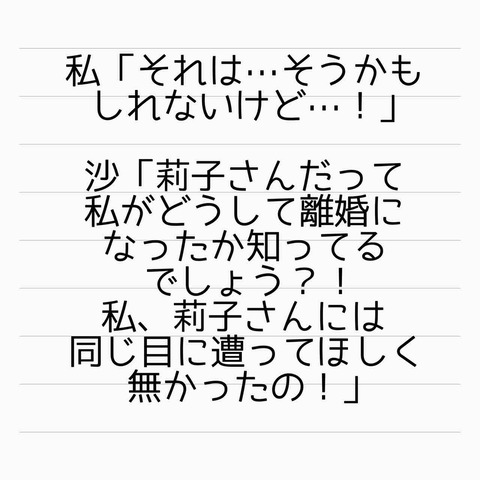 私「それは…そうかも
しれないけど…！」
沙「莉子さんだって
私がどうして離婚に
なったか知ってる
でしょう？！
私、莉子さんには
同じ目に遭ってほしく
無かったの！」